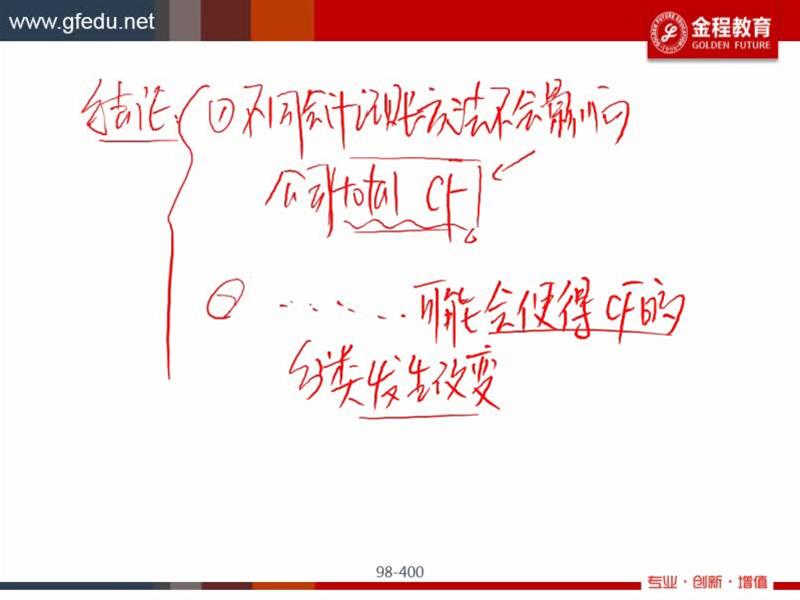 www.gfedu.net
金程教育
GOLDEN FUTURE
结论 ①不同会计记账方法不会影响
公司total CF
② ....... 可能会使得CF的
分类发生改变
98-400
专业·创新·增值